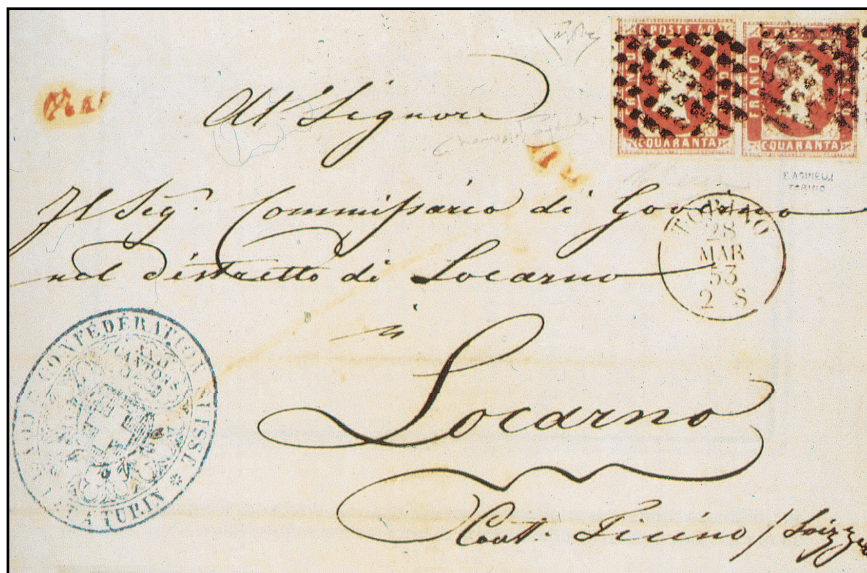 C. POSTE
FRANCO
QUARANTA
FRANCO
QUARANTA
Al Signore
E. ASINELLI
TORINO
Il Sig.r Commissario di Governo
nel distretto di Locarno
TORINO
28
MAR
53
2 S
à
CONFÉDÉRATION SUISSE
A TURIN
XXII
CANTONS
Locarno
Cant: Ticino / Svizzera